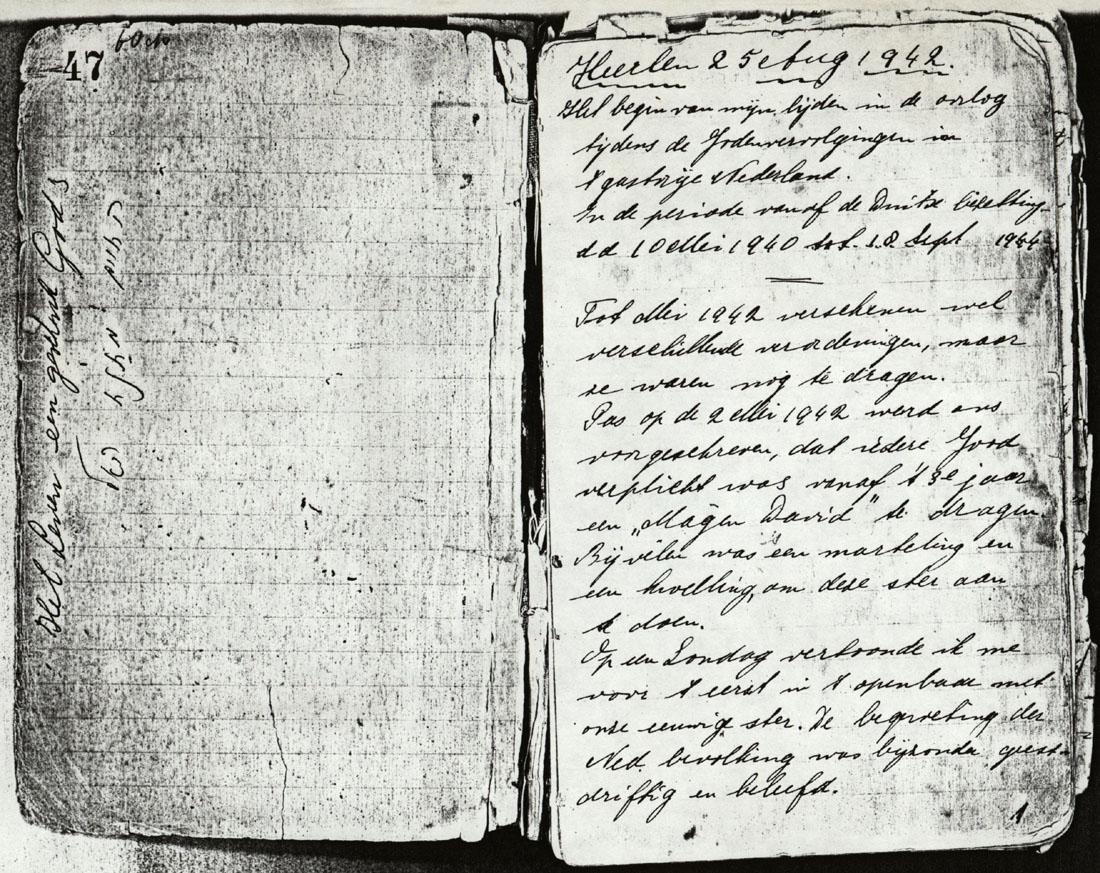 47
6 Oct
Het Leven een geschenk Gods
Heerlen 25 Aug 1942.
Het begin van mijn lijden in de oorlog
tijdens de Jodenvervolgingen in
't gastvrije Nederland.
In de periode vanaf de Duitse bezetting
dd 10 Mei 1940 tot 18 Sept 1944
Tot Mei 1942 verschenen wel
verschillende verordeningen, maar
ze waren nog te dragen.
Pas op de 2 Mei 1942 werd ons
voorgeschreven, dat iedere Jood
verplicht was vanaf 't 3e jaar
een „Magen David" te dragen
Bij velen was een marteling en
een kwelling, om deze ster aan
te doen.
Op een Zondag vertoonde ik me
voor 't eerst in 't openbaar met
onze eeuwige ster. De begroeting der
Ned. bevolking was bijzonder geest-
driftig en beleefd.
1